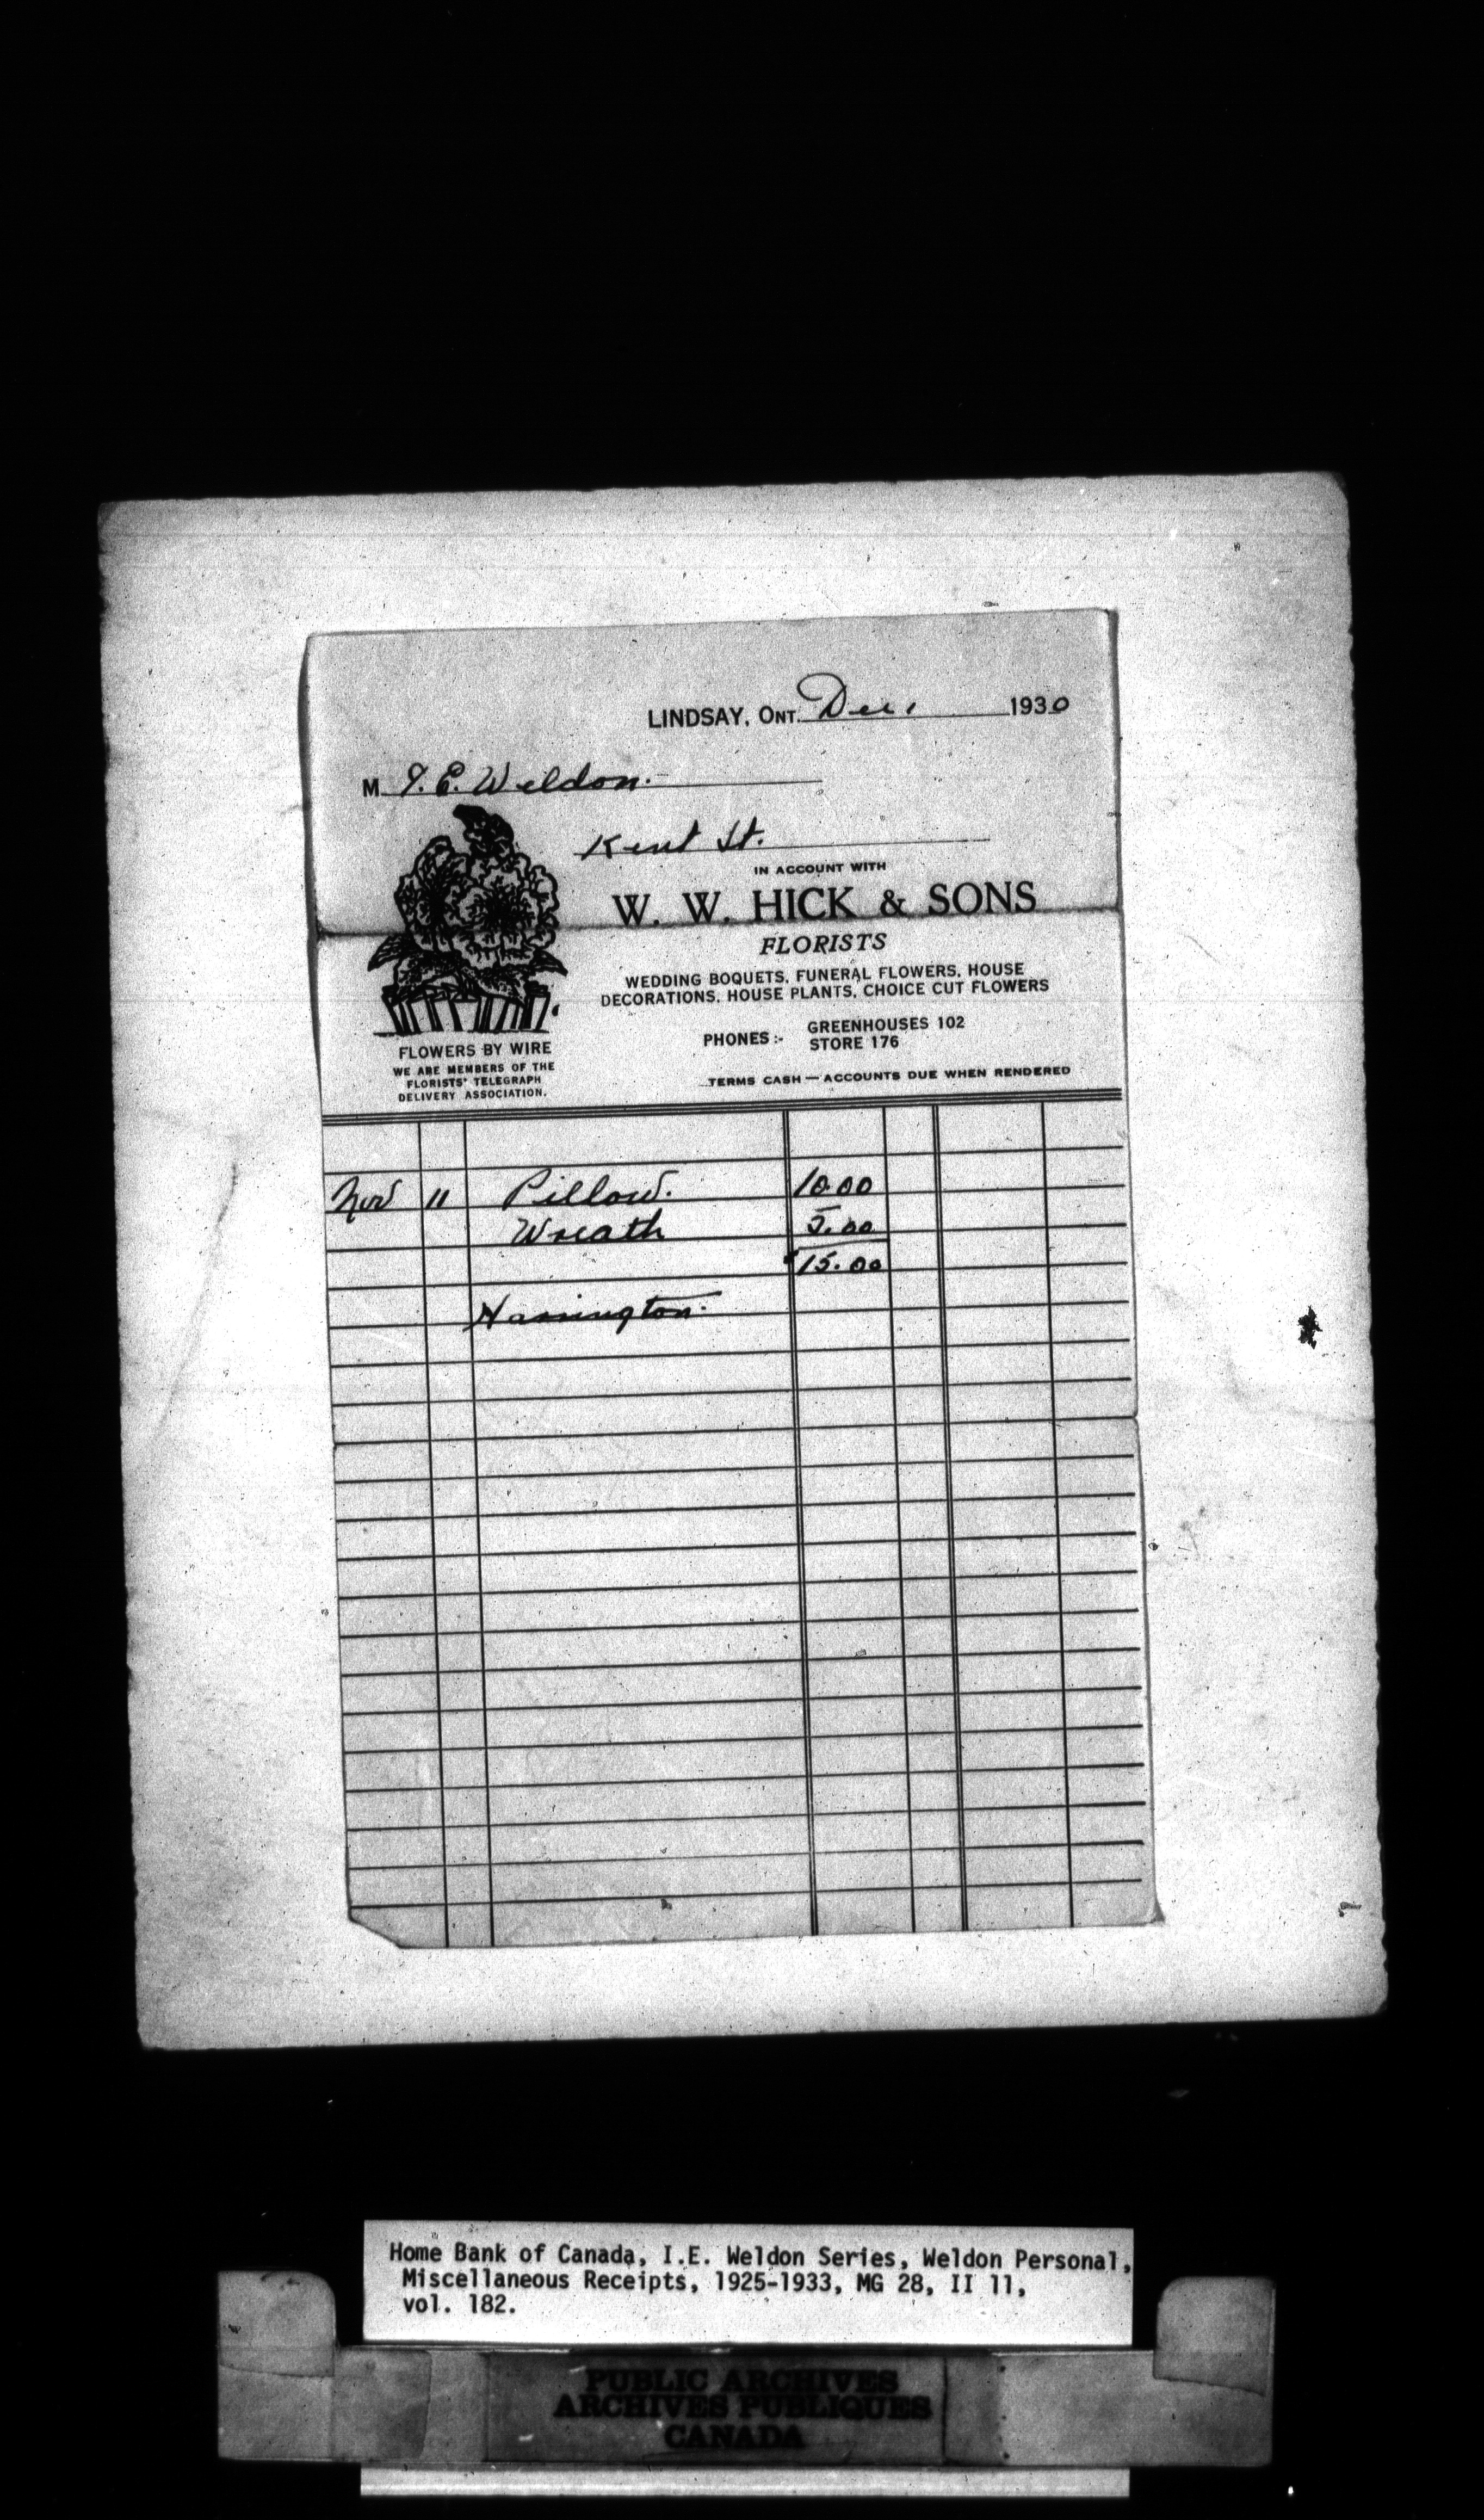 LINDSAY, ONT. Dec. 1930
M I. E. Weldon.
Kent St.
IN ACCOUNT WITH
W. W. HICK & SONS
FLORISTS
WEDDING BOQUETS, FUNERAL FLOWERS, HOUSE
DECORATIONS, HOUSE PLANTS, CHOICE CUT FLOWERS
PHONES:- GREENHOUSES 102
STORE 176
FLOWERS BY WIRE
WE ARE MEMBERS OF THE
FLORISTS' TELEGRAPH
DELIVERY ASSOCIATION.
TERMS CASH — ACCOUNTS DUE WHEN RENDERED
Nov 11 Pillow. 10.00
Wreath 5.00
15.00
Harrington.
Home Bank of Canada, I.E. Weldon Series, Weldon Personal,
Miscellaneous Receipts, 1925-1933, MG 28, II 11,
vol. 182.
PUBLIC ARCHIVES
ARCHIVES PUBLIQUES
CANADA